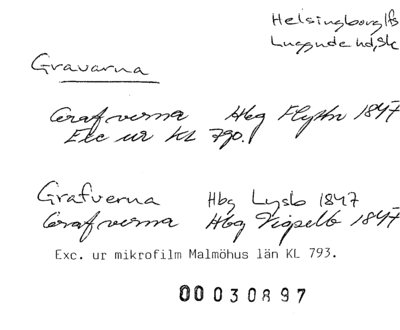 Helsingborg lfs
Luggude hd, Sk
Gravarna
Grafverna Hbg Flyttn 1847
Exc ur KL 790.
Grafverna Hbg Lysb 1847
Grafverna Hbg Vigselb 1847
Exc. ur mikrofilm Malmöhus län KL 793.
00030897